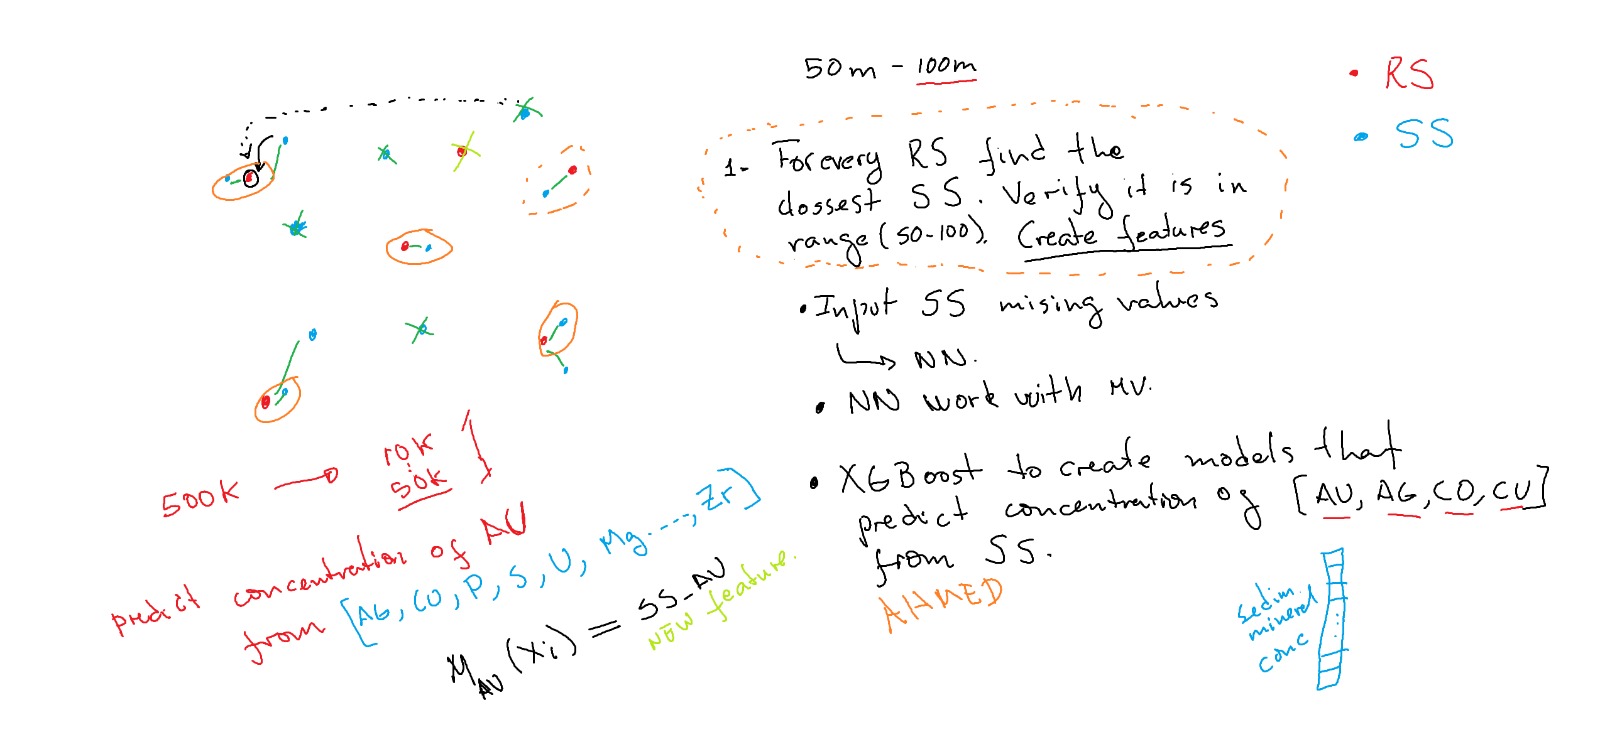 50m - 100m
• RS
• SS
1- For every RS find the
clossest SS. Verify it is in
range (50-100). Create features
• Input SS mising values
↳ NN.
• NN work with MV.
• XGBoost to create models that
predict concentration of [AU, AG, CO, CU]
from SS.
AHMED
sedim
mineral
conc
500K → 10K
50K
predict concentration of AU
from [AG, CO, P, S, U, Mg. ---, Zr]
M_AU (Xi) = SS_AU
NEW feature.